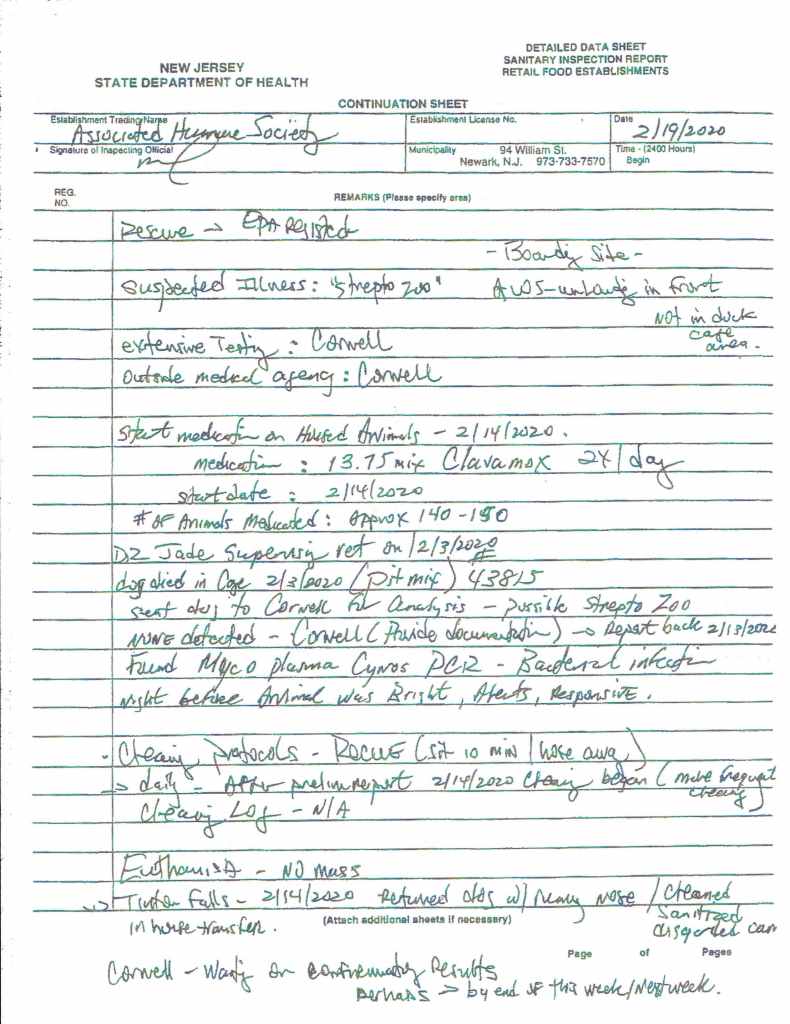 DETAILED DATA SHEET
SANITARY INSPECTION REPORT
RETAIL FOOD ESTABLISHMENTS
NEW JERSEY
STATE DEPARTMENT OF HEALTH
CONTINUATION SHEET
Establishment Trading Name
Associated Humane Society
Establishment License No.
Date
2/19/2020
Signature of Inspecting Official
Municipality 94 William St.
Newark, N.J. 973-733-7570
Time - (2400 Hours)
Begin
REG.
NO.
REMARKS (Please specify area)
Rescue → EPA Registed
- Boarding Site -
Suspected Illness: "Strepto Zoo"
in front
Not in
area.
extensive Testing : Cornell
Outside medical agency : Cornell
Start medication on Housed Animals - 2/14/2020.
medication : 13.75 mix Clavamox 2X/day
start date : 2/14/2020
# of Animals Medicated : Approx 140 - 150
DZ Jade Supervising vet on 2/3/2020
#
dog died in Cage 2/3/2020 (Pit mix) 43815
sent dog to Cornell for analysis - possible Strepto Zoo
NONE detected - Cornell (Provide documentation) → Report back 2/13/2020
Found Mycoplasma Cynos PCR - Bacterial infection
night before Animal was Bright, Alerts, Responsive.
- Cleaning protocols - RESCUE (sit 10 min / hose away)
→ daily - After prelim report 2/14/2020 Cleaning began (more frequent
cleaning)
Cleaning Log - N/A
Euthanisia - NO Mass
→ Tinton Falls - 2/14/2020 Returned dog w/ runny nose / Cleaned
Sanitized
in house transfer.
(Attach additional sheets if necessary)
Page of Pages
Cornell - Waiting on confirmatory Results
perhaps → by end of this week/Next week.